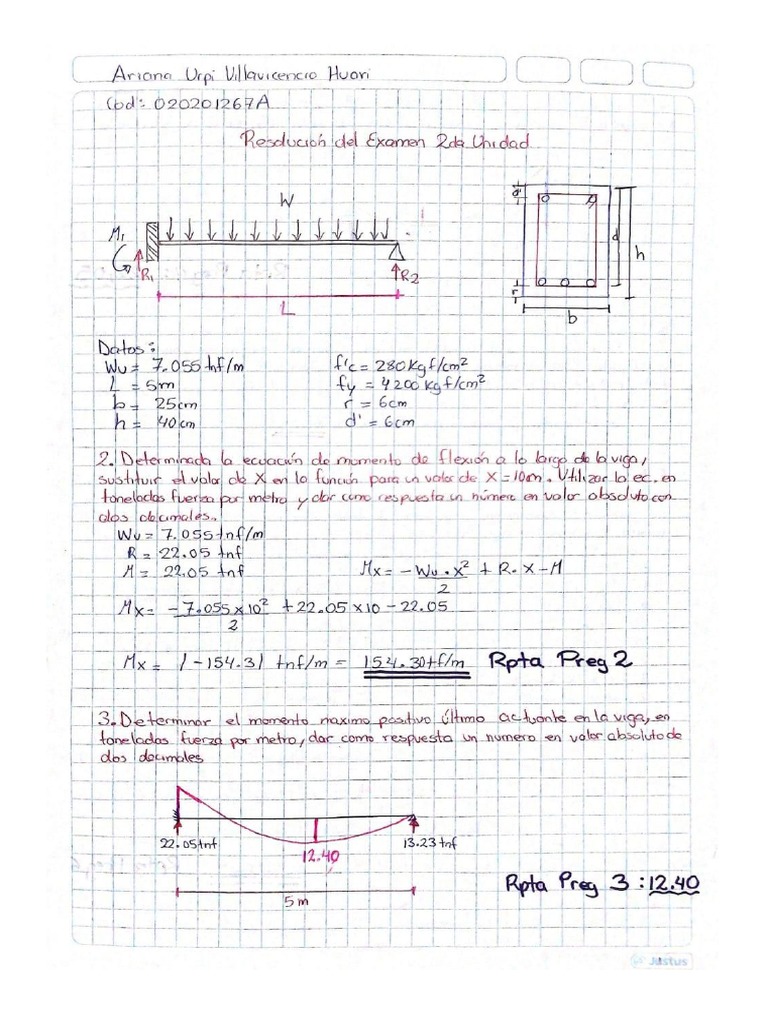 Ariana Urpi Villavicencio Huari
Cod: 020201267A
Resolución del Examen 2da Unidad
W
M1
R1
R2
L
d'
d
h
r
b
Datos:
Wu = 7.055 tnf/m
f'c = 280 Kgf/cm²
L = 5m
fy = 4200 kgf/cm²
b = 25cm
r = 6cm
h = 40cm
d' = 6cm
2. Determinada la ecuación de momento de flexión a lo largo de la viga,
sustituir el valor de X en la función para un valor de X = 10m. Utilizar la ec. en
toneladas fuerza por metro y dar como respuesta un número en valor absoluto con
dos decimales.
Wu = 7.055 tnf/m
R = 22.05 tnf
M = 22.05 tnf
Mx = -Wu.x²/2 + R.x - M
Mx = -7.055x10²/2 + 22.05x10 - 22.05
Mx = /-154.3/ tnf/m = 154.30tf/m Rpta Preg 2
3. Determinar el momento maximo positivo último actuante en la viga, en
toneladas fuerza por metro, dar como respuesta un numero en valor absoluto de
dos decimales
22.05tnf
12.40
13.23 tnf
Rpta Preg 3 : 12.40
5 m
Justus